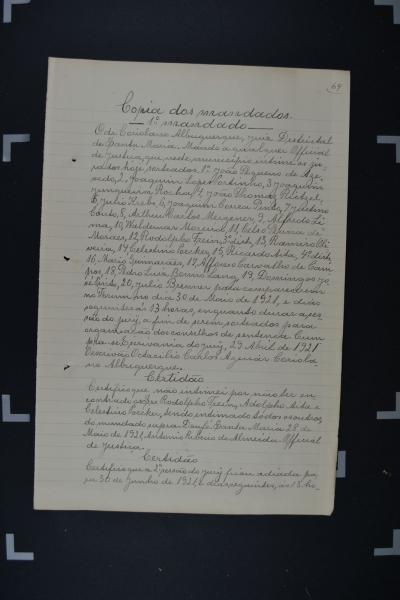 69
Copia dos mandados.
1º mandado
O dr Coriolano Albuquerque, juiz Districtal
de Santa Maria. Mando a qualquer Official
de Justiça que neste municipio intime os ju-
rados hoje sorteados. 1º João Pequeno de Aze-
vedo, 2, Joaquim Lopes Portinho, 3 Joaquim
Junqueira Rocha, 4 João Thomaz
5, Julio Krebs, 6, Joaquim Correa Pinto, 7 Justino
Couto, 8, Arthur Carlos 9, Alfredo Li-
ma, 10, Waldemar 11, Celso Penna de
Moraes, 12, Rodolpho 3º dist, 13, Ramiro Oli-
veira, 14, Celestino 15, Ricardo 4º dist,
16 Mario Guimarães, 17, Affonso Carvalho de Cam-
pos, 18, Pedro Luiz 19, Domingos Jo-
sé 20, Julio Brenner para comparecerem
no Forum no dia 30 de Maio de 1921, e dias
seguintes ás 13 horas, enquanto durar a ses-
são do jury, a fim de serem sorteados para
organisação dos conselhos de sentença. Cum-
pra-se. Escrivania do jury, 29 Abril de 1921
Escrivão Odacilio Carlos Coriola-
no Albuquerque.
Certidão
Certifico que não intimei por não ter en-
contrado os srs Rodolpho Adolpho e
Celestino sendo intimado todos os outros
do mandado supra. Dou fé. Santa Maria 28 de
Maio de 1921. Antonio Ribeiro de Almeida. Official
de Justiça.
Certidão
Certifico que a 2ª sessão do jury ficou adiada pa-
ra 30 de Junho de 1921, e dias seguintes, ás 13 ho-